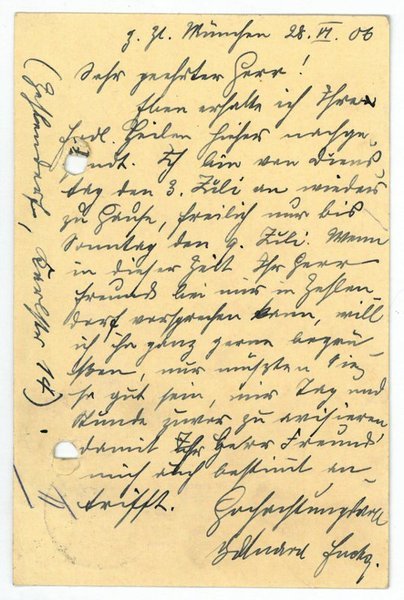 z. Zt. München 28. VI. 06
Sehr geehrter Herr!
Eben erhalte ich Ihre
frdl. Zeilen hieher nachge-
sandt. Ich bin von Diens-
tag den 3. Juli an wieder
zu Hause, freilich nur bis
Sonntag den 9. Juli. Wenn
in dieser Zeit Ihr Herr
Freund bei mir in Zehlen
dorf vorsprechen kann, will
ich ihn ganz gerne begrü-
ßen, nur müßten Sie
so gut sein, mir Tag und
Stunde zuvor zu avisieren
damit Ihr Herr Freund
mich auch bestimmt an-
trifft.
Hochachtungsvoll
Eduard
(Zehlendorf, 14).